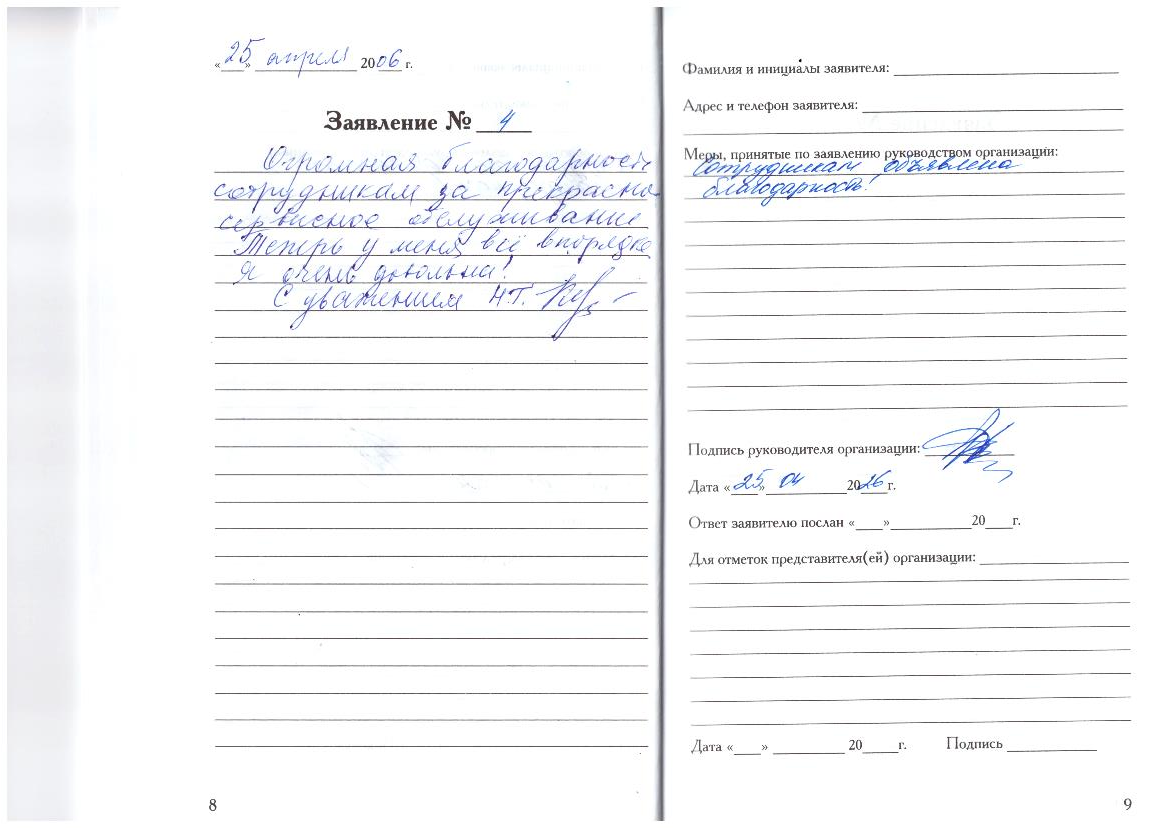 «25» апреля 2006 г.
Заявление № 4
Огромная благодарность
сотрудникам за прекрасно
сервисное обслуживание
Теперь у меня всё впорядке
Я очень довольна!
С уважением Н.Т.
8
Фамилия и инициалы заявителя:
Адрес и телефон заявителя:
Меры, принятые по заявлению руководством организации:
Сотрудникам объявлена
благодарность!
Подпись руководителя организации:
Дата «25» 04 2026 г.
Ответ заявителю послан «___»__________20___г.
Для отметок представителя(ей) организации:
Дата «___» _________ 20____г. Подпись ___________
9